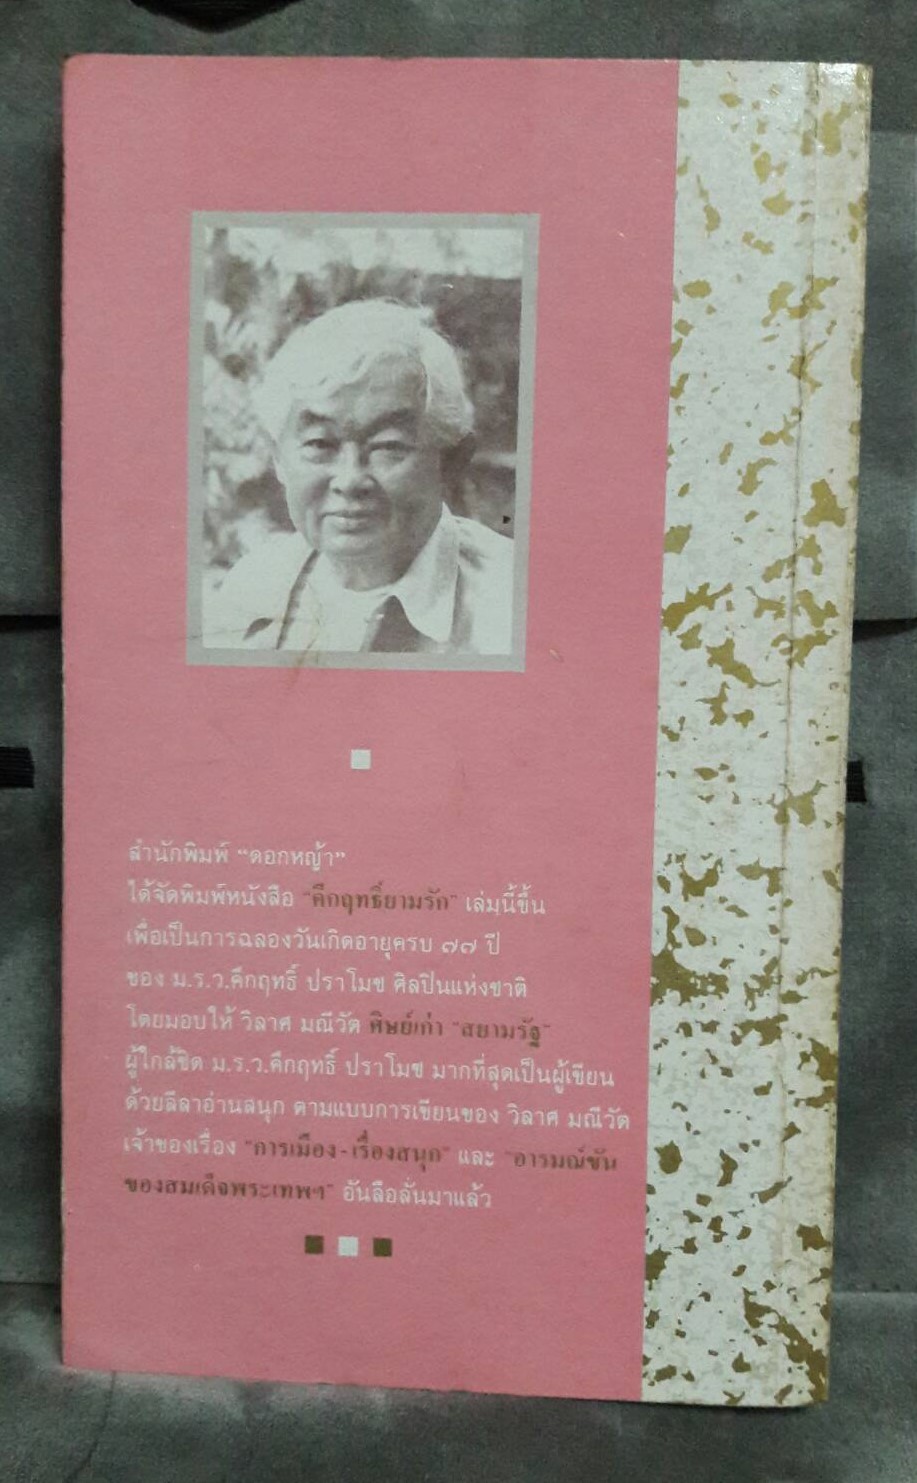 สำนักพิมพ์ “ดอกหญ้า”
ได้จัดพิมพ์หนังสือ “คึกฤทธิ์ยามรัก” เล่มนี้ขึ้น
เพื่อเป็นการฉลองวันเกิดอายุครบ ๗๗ ปี
ของ ม.ร.ว.คึกฤทธิ์ ปราโมช ศิลปินแห่งชาติ
โดยมอบให้ วิลาศ มณีวัต ศิษย์เก่า “สยามรัฐ”
ผู้ใกล้ชิด ม.ร.ว.คึกฤทธิ์ ปราโมช มากที่สุดเป็นผู้เขียน
ด้วยลีลาอ่านสนุก ตามแบบการเขียนของ วิลาศ มณีวัต
เจ้าของเรื่อง “การเมือง-เรื่องสนุก” และ “อารมณ์ขัน
ของสมเด็จพระเทพฯ” อันลือลั่นมาแล้ว